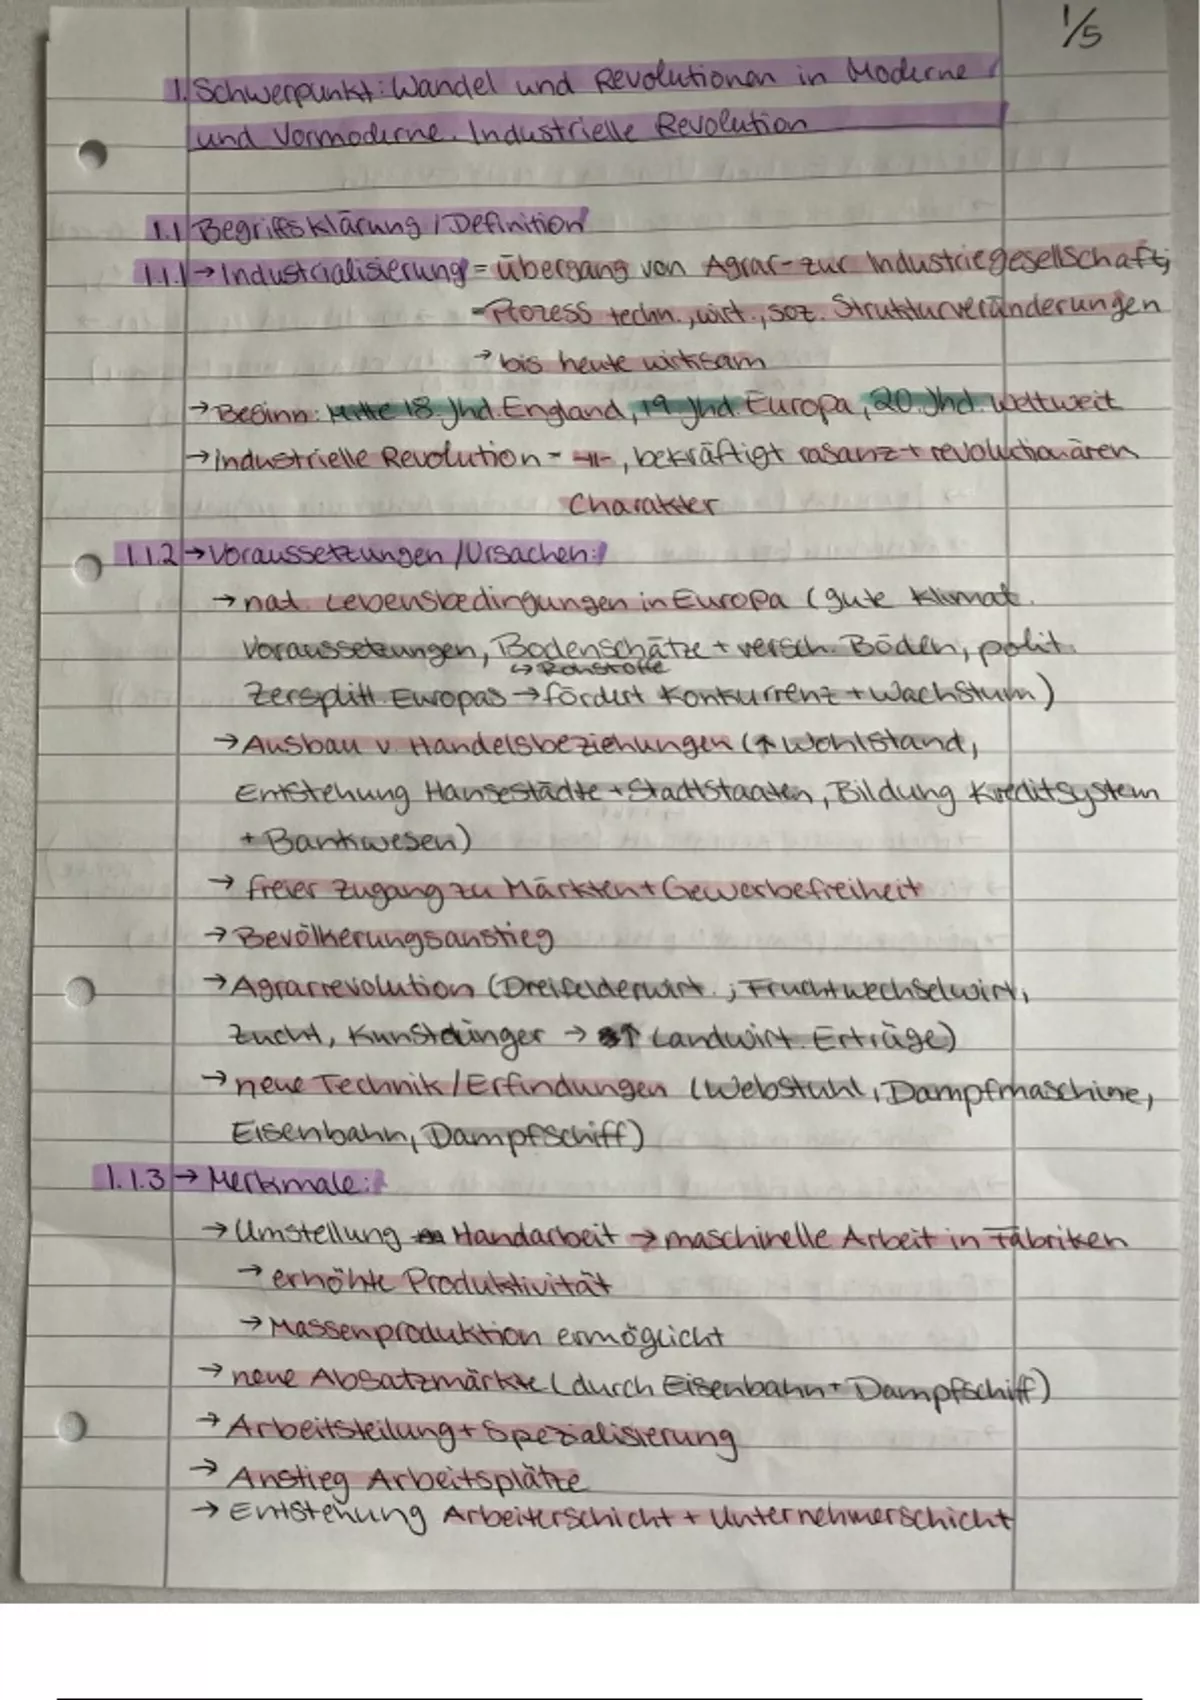 1/5
1. Schwerpunkt: Wandel und Revolutionen in Moderne
und Vormoderne. Industrielle Revolution
1.1 Begriffsklärung / Definition
1.1.1 → Industrialisierung = Übergang von Agrar- zur Industriegesellschaft;
- Prozess techn., wirt., soz. Strukturveränderungen
→ bis heute wirksam
→ Beginn: Mitte 18. Jhd. England, 19. Jhd. Europa, 20. Jhd. weltweit
→ Industrielle Revolution = -"-, bekräftigt rasanz + revolutionären
Charakter
1.1.2 → Voraussetzungen / Ursachen:
→ nat. Lebensbedingungen in Europa (gute klimat.
Voraussetzungen, Bodenschätze + versch. Böden, polit.
↪ Rohstoffe
Zersplitt. Europas → fördert Konkurrenz + Wachstum)
→ Ausbau v. Handelsbeziehungen (↑ Wohlstand,
Entstehung Hansestädte + Stadtstaaten, Bildung Kreditsystem
+ Bankwesen)
→ freier Zugang zu Märkten + Gewerbefreiheit
→ Bevölkerungsanstieg
→ Agrarrevolution (Dreifelderwirt.; Fruchtwechselwirt,
Zucht, Kunstdünger → ↑ Landwirt. Erträge)
→ neue Technik / Erfindungen (Webstuhl, Dampfmaschine,
Eisenbahn, Dampfschiff)
1.1.3 → Merkmale:
→ Umstellung Handarbeit → maschinelle Arbeit in Fabriken
→ erhöhte Produktivität
→ Massenproduktion ermöglicht
→ neue Absatzmärkte (durch Eisenbahn + Dampfschiff)
→ Arbeitsteilung + Spezialisierung
→ Anstieg Arbeitsplätze
→ Entstehung Arbeiterschicht + Unternehmerschicht